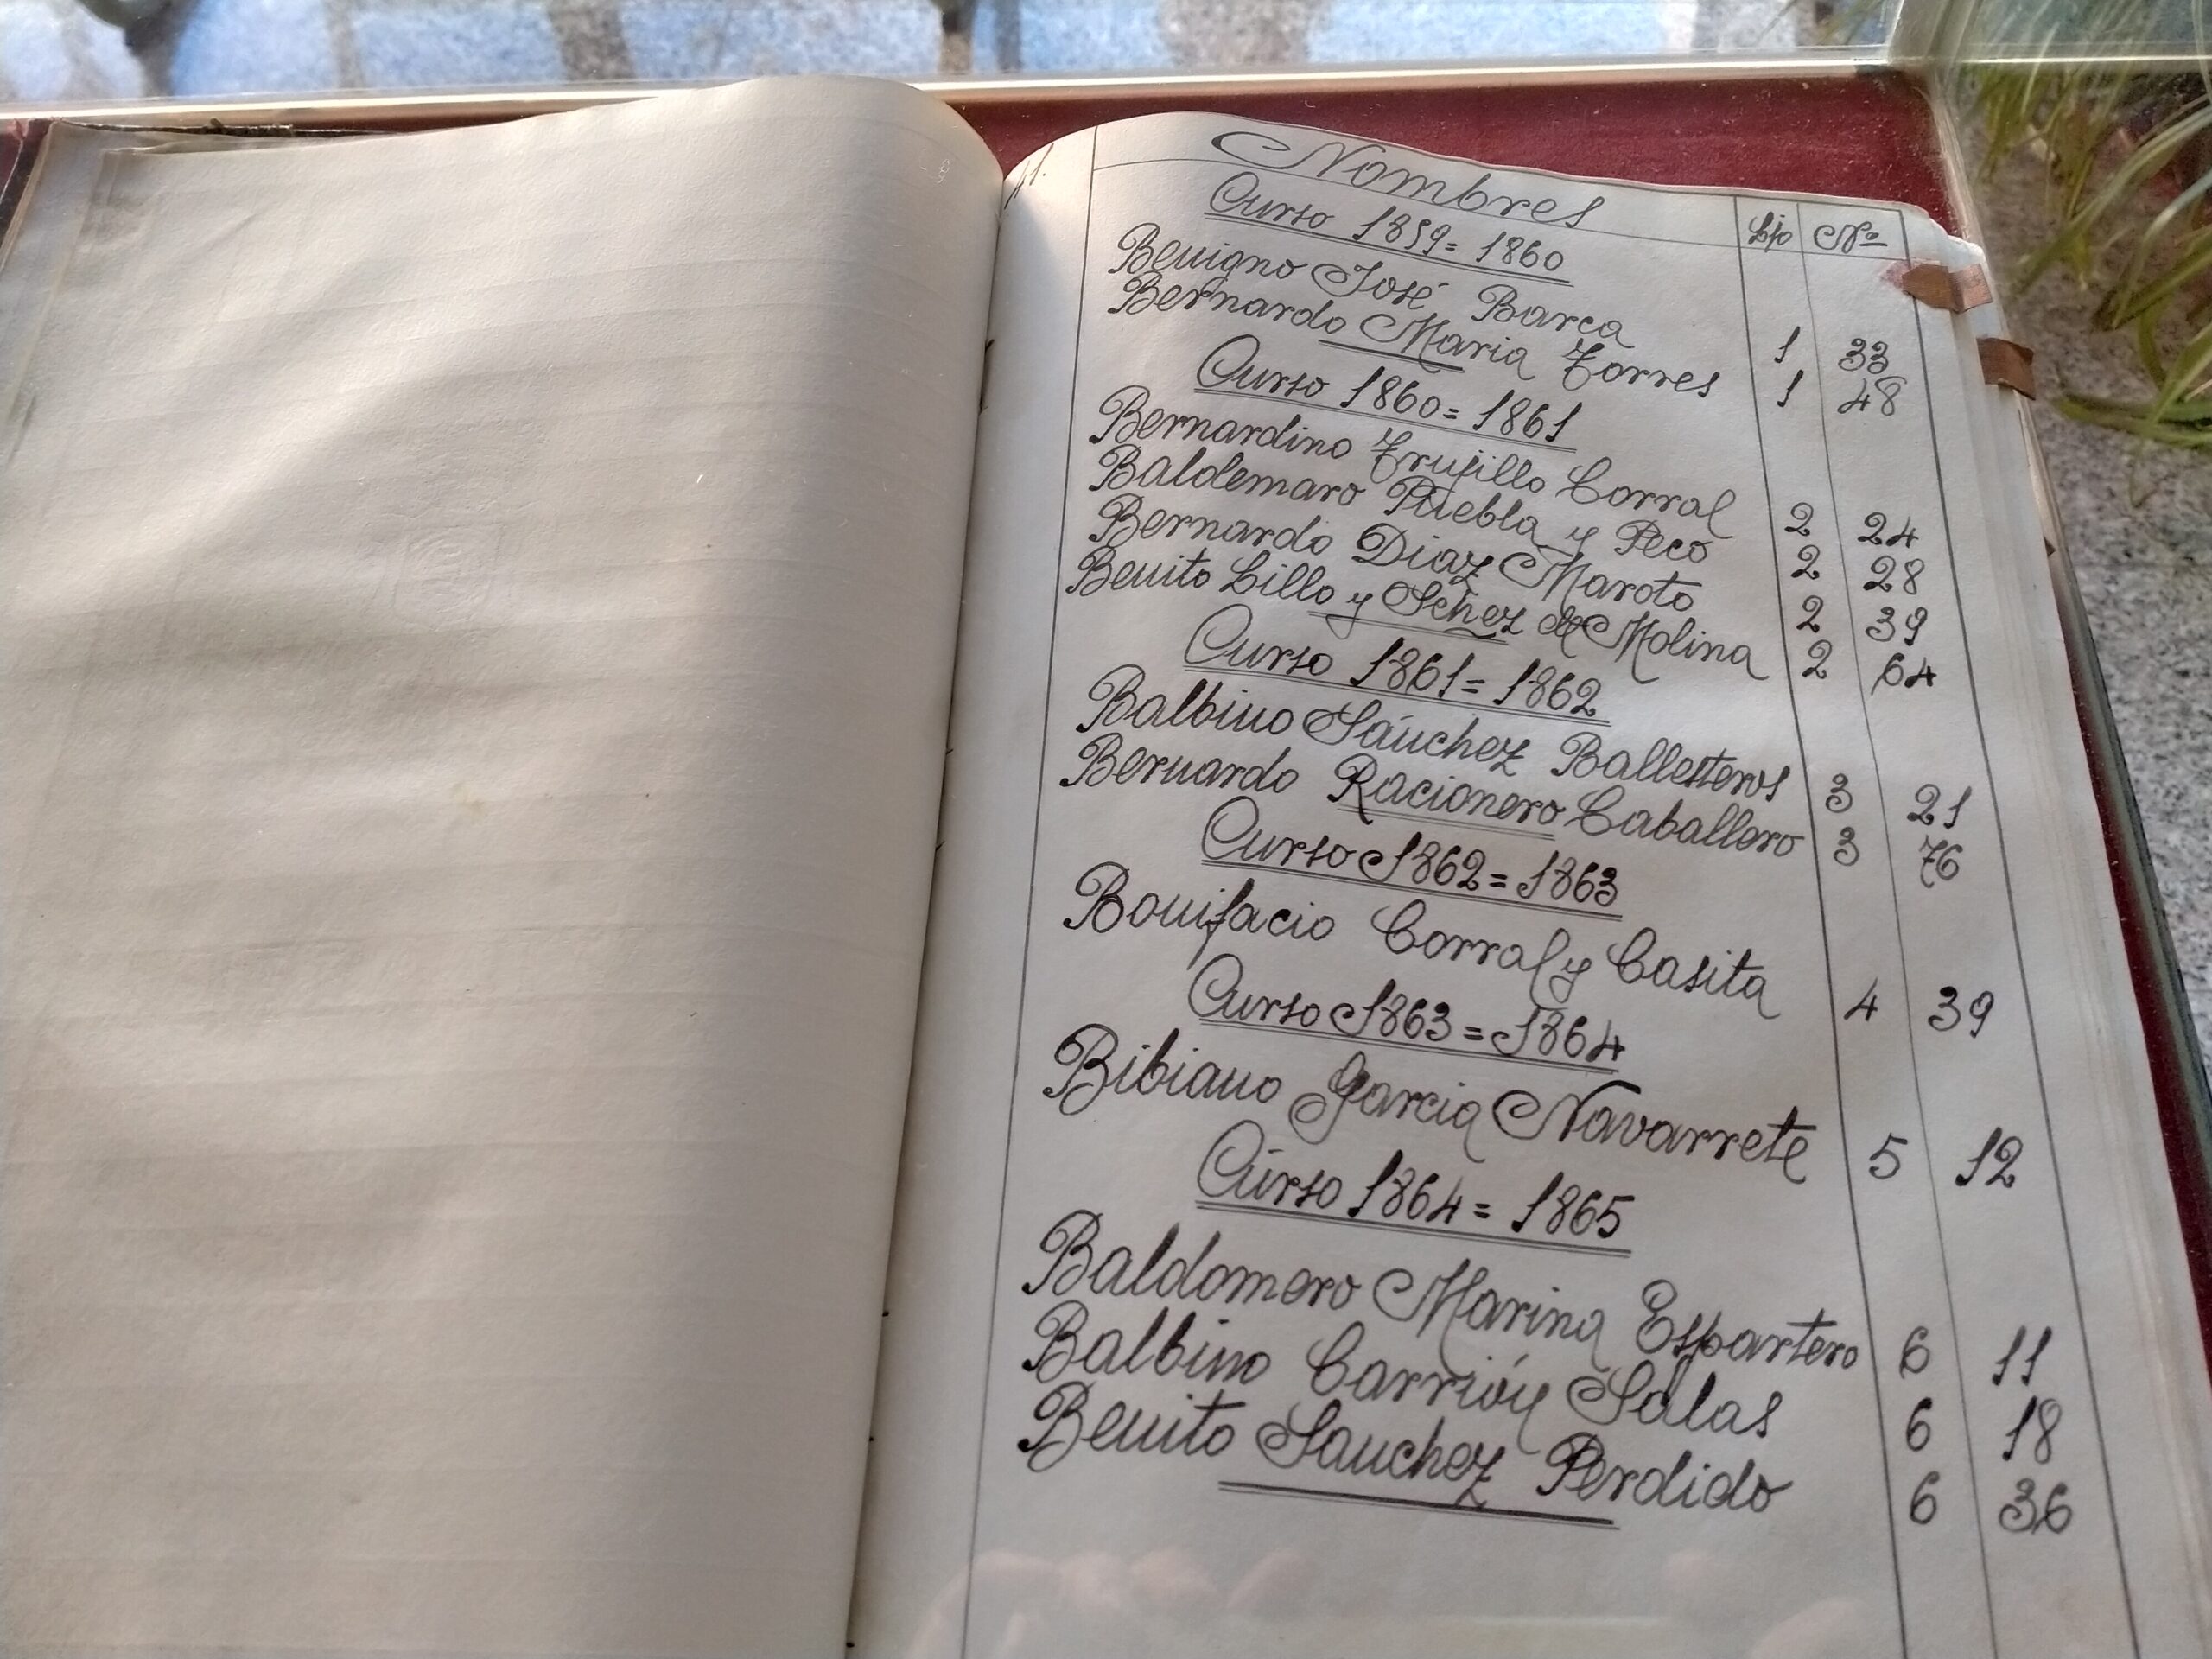 Nombres Ljo Nº
Curso 1859=1860
Benigno José Barca 1 33
Bernardo Maria Torres 1 48
Curso 1860=1861
Bernardino Trujillo Corral 2 24
Baldemaro Puebla y Peco 2 28
Bernardo Diaz Maroto 2 39
Benito Lillo y Schez de Molina 2 64
Curso 1861=1862
Balbino Sánchez Ballesteros 3 21
Bernardo Racionero Caballero 3 76
Curso 1862=1863
Bonifacio Corral y Casita 4 39
Curso 1863=1864
Bibiano Garcia Navarrete 5 12
Curso 1864=1865
Baldomero Marina Espartero 6 11
Balbino Carrión Salas 6 18
Benito Sanchez Perdido 6 36